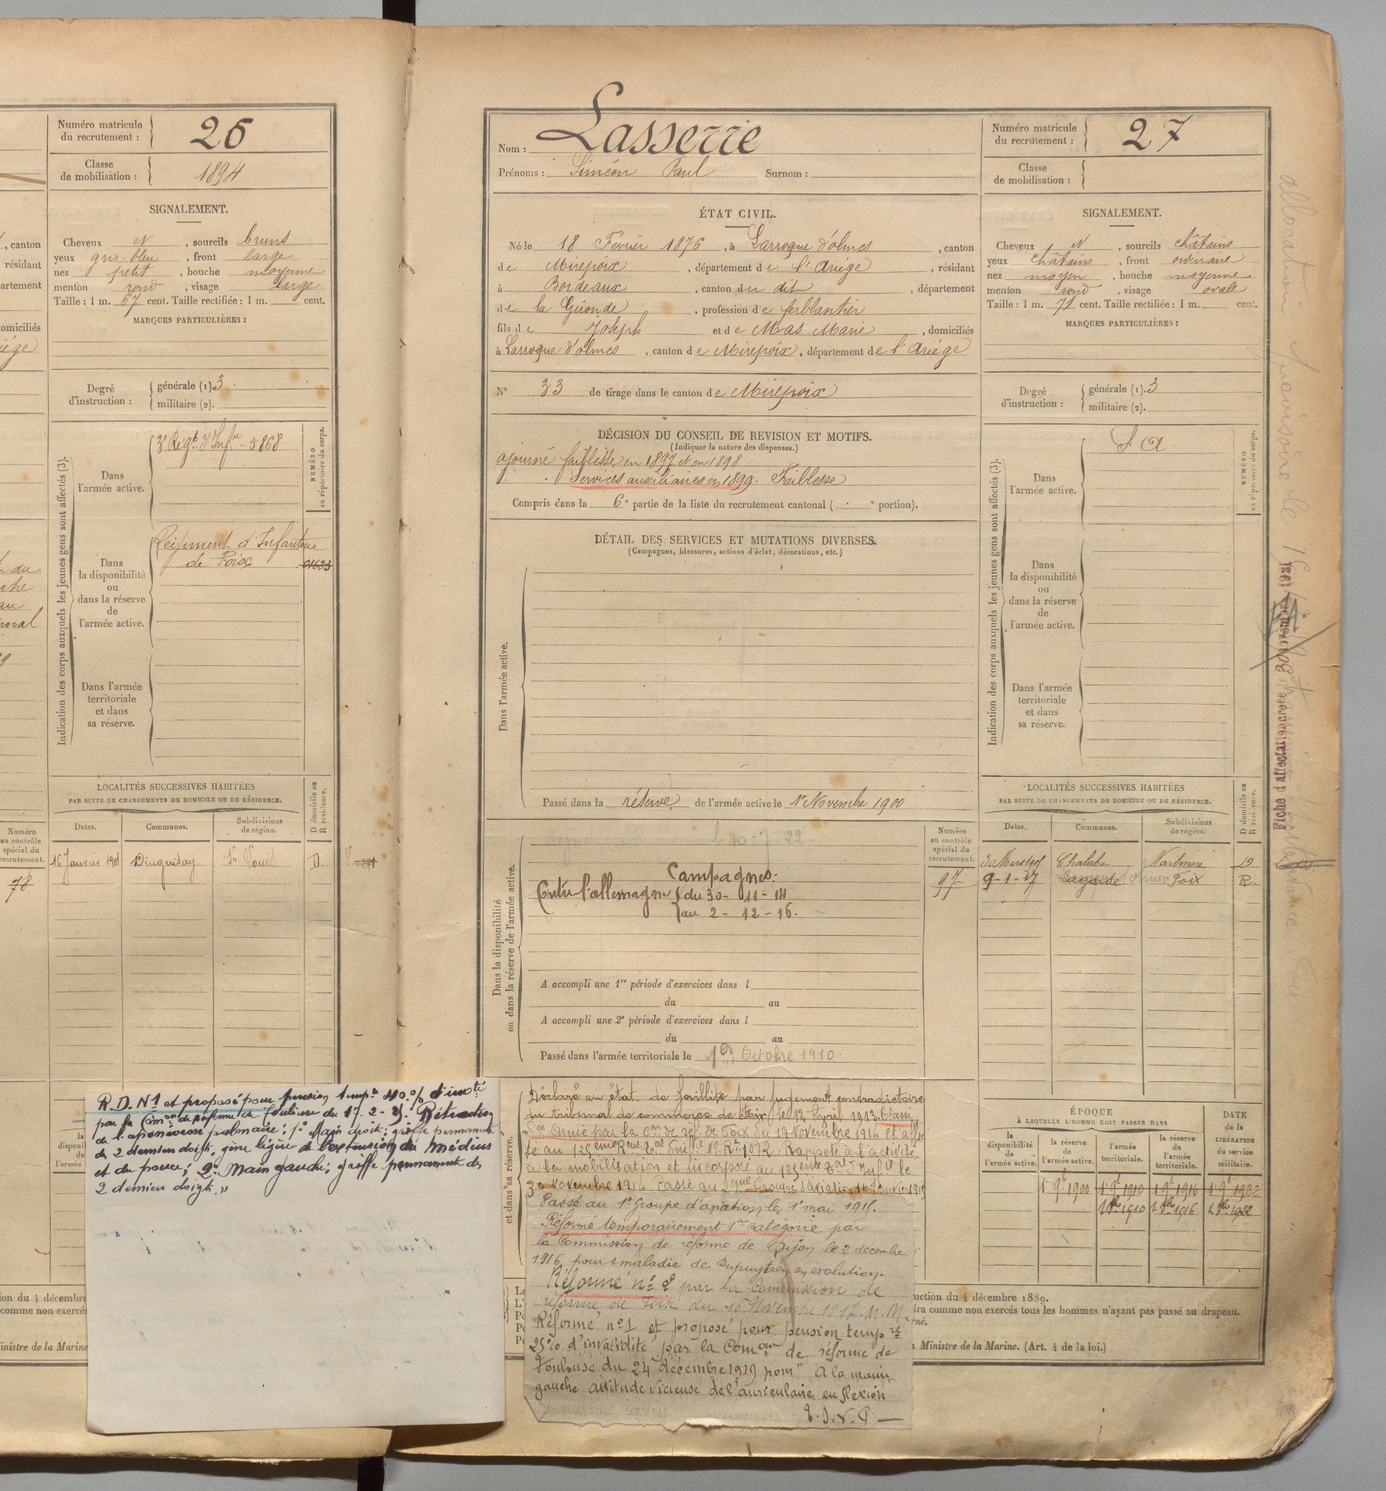 Numéro matricule
du recrutement :
26
Classe
de mobilisation :
1894
SIGNALEMENT.
Cheveux et N, sourcils bruns
yeux gris-bleu, front large
nez petit, bouche moyenne
menton rond, visage large
Taille : 1 m. 67 cent. Taille rectifiée : 1 m. cent.
MARQUES PARTICULIÈRES :
Degré
d'instruction :
générale (1). 3
militaire (2).
Indication des corps auxquels les jeunes gens sont affectés (3).
Dans
l'armée active.
3e Régt d'Infie - 5868
NUMÉRO
au répertoire du corps.
Dans
la disponibilité
ou
dans la réserve
de
l'armée active.
Régiment d'Infanterie
de Foix
Dans l'armée
territoriale
et dans
sa réserve.
LOCALITÉS SUCCESSIVES HABITÉES
PAR SUITE DE CHANGEMENTS DE DOMICILE OU DE RÉSIDENCE.
Dates. Communes. Subdivisions
de région.
D domicile ou
R résidence.
16 Janvier 1901
D.
Numéro
au contrôle
spécial du
recrutement.
78
, canton
résidant
domiciliés
R. D. N°1 et proposé pour pension tempre 40 % d'invté
par la Comon de réforme de Toulouse du 17-2-25. Rétraction
de l'aponévrose palmaire : 1° Main droite : griffe permanente
des 2 derniers doigts, gêne légère à l'extension du Médius
et du pouce ; 2° Main gauche ; griffe permanente des
2 derniers doigts. »
Nom : Lasserre
Prénoms : Siméon Paul Surnom :
Numéro matricule
du recrutement :
27
Classe
de mobilisation :
ÉTAT CIVIL.
Né le 18 Février 1876, à Larroque d'olmes, canton
de Mirepoix, département de l'Ariège, résidant
à Bordeaux, canton du dit, département
de la Gironde, profession de ferblantier
fils de Joseph et de Mas Marie, domiciliés
à Larroque d'olmes, canton de Mirepoix, département de l'Ariège
N° 33 de tirage dans le canton de Mirepoix
DÉCISION DU CONSEIL DE REVISION ET MOTIFS.
(Indiquer la nature des dispenses.)
ajourné faiblesse en 1897 et en 1898
Services auxiliaires en 1899. Faiblesse
Compris dans la 6e partie de la liste du recrutement cantonal ( e portion).
DÉTAIL DES SERVICES ET MUTATIONS DIVERSES.
(Campagnes, blessures, actions d'éclat, décorations, etc.)
Dans l'armée active.
Passé dans la réserve de l'armée active le 1er Novembre 1900
Dans la disponibilité
ou dans la réserve de l'armée active.
le 10-7-22
Campagnes.
Contre l'allemagne du 30-11-14
au 2-12-16.
A accompli une 1re période d'exercices dans l
du au
A accompli une 2e période d'exercices dans l
du au
Passé dans l'armée territoriale le 1er Octobre 1910
Numéro
au contrôle
spécial du
recrutement.
97
SIGNALEMENT.
Cheveux N, sourcils châtains
yeux châtains, front ordinaire
nez moyen, bouche moyenne
menton rond, visage ovale
Taille : 1 m. 72 cent. Taille rectifiée : 1 m. cent.
MARQUES PARTICULIÈRES :
Degré
d'instruction :
générale (1). 3
militaire (2).
Indication des corps auxquels les jeunes gens sont affectés (3).
Dans
l'armée active.
S A
NUMÉRO
au répertoire du corps.
Dans
la disponibilité
ou
dans la réserve
de
l'armée active.
Dans l'armée
territoriale
et dans
sa réserve.
LOCALITÉS SUCCESSIVES HABITÉES
PAR SUITE DE CHANGEMENTS DE DOMICILE OU DE RÉSIDENCE.
Dates. Communes. Subdivisions
de région.
D domicile ou
R résidence.
Chalabre Narbonne D
9-1-17 Lagarde Foix R.
Déclaré en état de faillite par jugement contradictoire
du tribunal de commerce de Foix le 12 Avril 1913. Classé
Sce Armé par la Con de réf. de Foix du 19 Novembre 1914 et affec
té au
Rappelé à l'activité
à la mobilisation et incorporé au
30 Novembre 1914. Passé au 2ème Groupe d'aviation
Passé au 1er Groupe d'aviation le 1er mai 1916.
Réformé temporairement 1re catégorie par
la Commission de réforme de Dijon le 2 décembre
1916, pour maladie de Dupuytren en évolution.
Réformé n° 2 par la Commission de
réforme de Foix du 16 Novembre 1917.
Réformé n° 1 et proposé pour pension tempre
25% d'invalidité par la Comon de réforme de
Toulouse du 24 décembre 1919 pour " A la main
gauche attitude vicieuse de l'auriculaire en flexion
et dans sa réserve.
ÉPOQUE
À LAQUELLE L'HOMME DOIT PASSER DANS
la
disponibilité
de
l'armée active.
la réserve
de
l'armée active.
l'armée
territoriale.
la réserve
de
l'armée
territoriale.
DATE
de la
LIBÉRATION
du service
militaire.
1 9bre 1900 1 9bre 1910 1 9bre 1916 1 9bre 1922
1 8bre 1910 1 8bre 1916 1 8bre 1922
uction du 4 décembre 1889.
dra comme non exercés tous les hommes n'ayant pas passé au drapeau.
Ministre de la Marine. (Art. 4 de la loi.)
allocation provisoire de